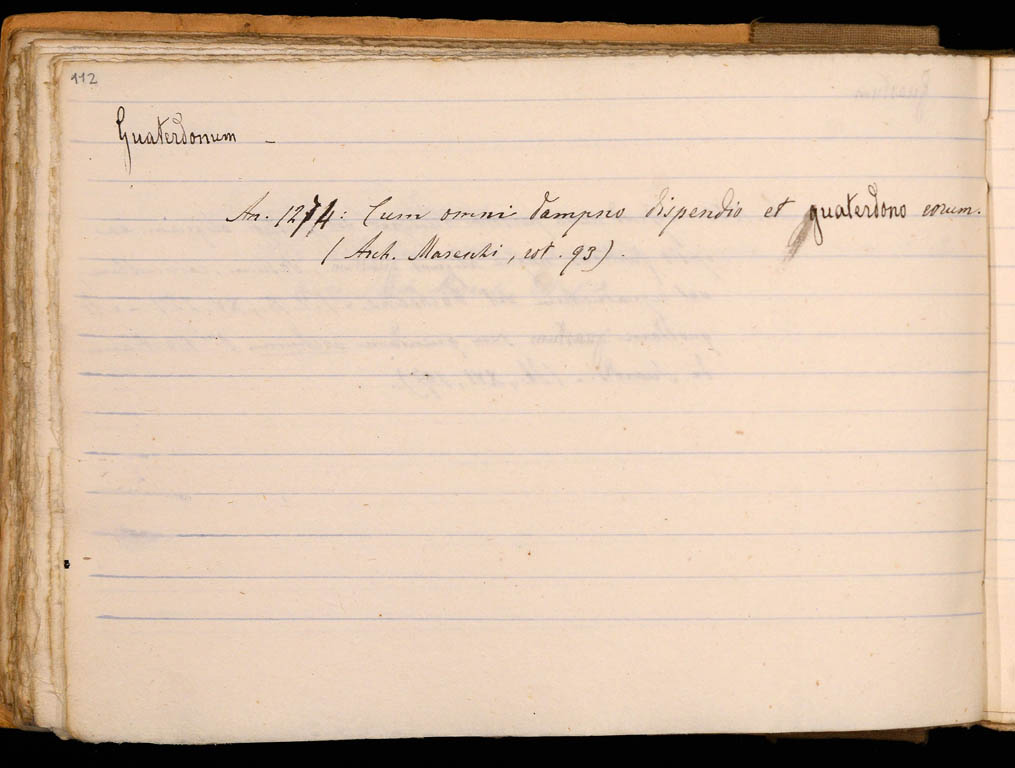 112
Guaterdonum -
An. 1274: Cum omni dampno dispendio et guaterdono eorum.
(Arch. Mareschi, cot. 93).